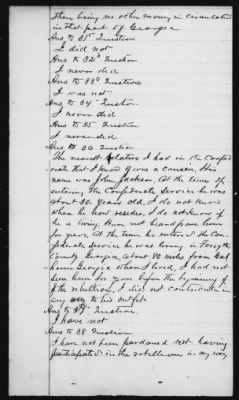 There being no other money in circulation
in that part of Georgia
Ans to 31st Question
I did not
Ans to 32d Question
I never did
Ans to 33d Question
I was not
Ans to 34 Question
I never did
Ans to 35 Question
I never did
Ans to 36 Question
The nearest relative I had in the Confed
erate that I know of was a cousin, His
name was John Jackson, At the time of
entering the Confederate service he was
about 30 years old, I do not know
where he now resides, I do not know if
he is living, Have not heard from him
for years, At the time he entered the Con-
federate service he was living in Forsythe
County Georgia, about 80 miles from Cal
houn Georgia where I lived, I had not
seen him for years before the beginning of
the rebellion, I did not contribute in
any way to his outfit
Ans to 37 Question
I have not
Ans to 38 Question
I have not been pardoned not having
participated in the rebellion in any way